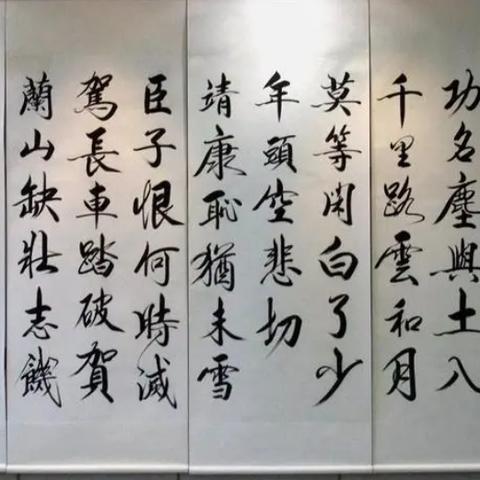 功名塵與土八
千里路雲和月
莫等閑白了少
年頭空悲切
靖康恥猶未雪
臣子恨何時滅
駕長車踏破賀
蘭山缺壯志饑